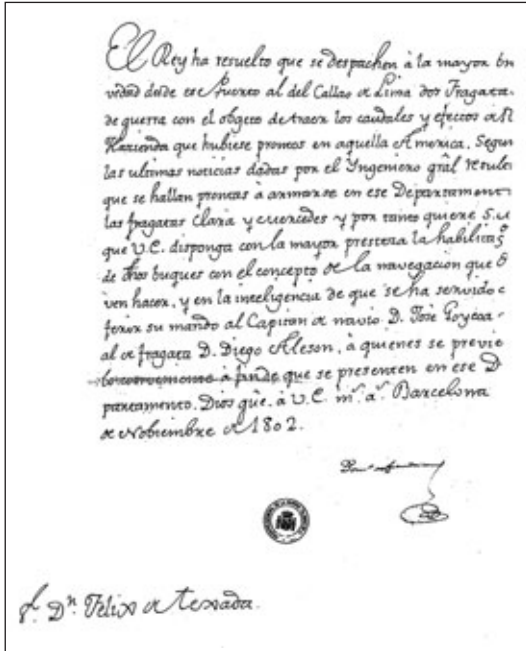 El Rey ha resuelto que se despachen à la mayor bre
vedad desde ese Puerto al del Callao de Lima dos Fragatas
de guerra con el objeto de traer los caudales y efectos de Rl
Hazienda que hubiese prontos en aquella America. Segun
las ultimas noticias dadas por el Ingeniero gral resulta
que se hallan prontas à armarse en ese Departamento
las fragatas Clara y Mercedes y por tanto quiere S.M
que V.E. disponga con la mayor presteza la habilitaᵒ
de dhos buques con el concepto de la navegacion que
ven hacer, y en la inteligencia de que se ha servido
ferir su mando al Capitan de navio D. Josè Goycoa
al de fragata D. Diego Aleson, à quienes se previe
lo conveniente à fin de que se presenten en ese D
partamento. Dios gûe. à V.E. mˢ. aˢ. Barcelona
de Nobiembre de 1802.
Sʳ. Dⁿ. Felix de Texada.